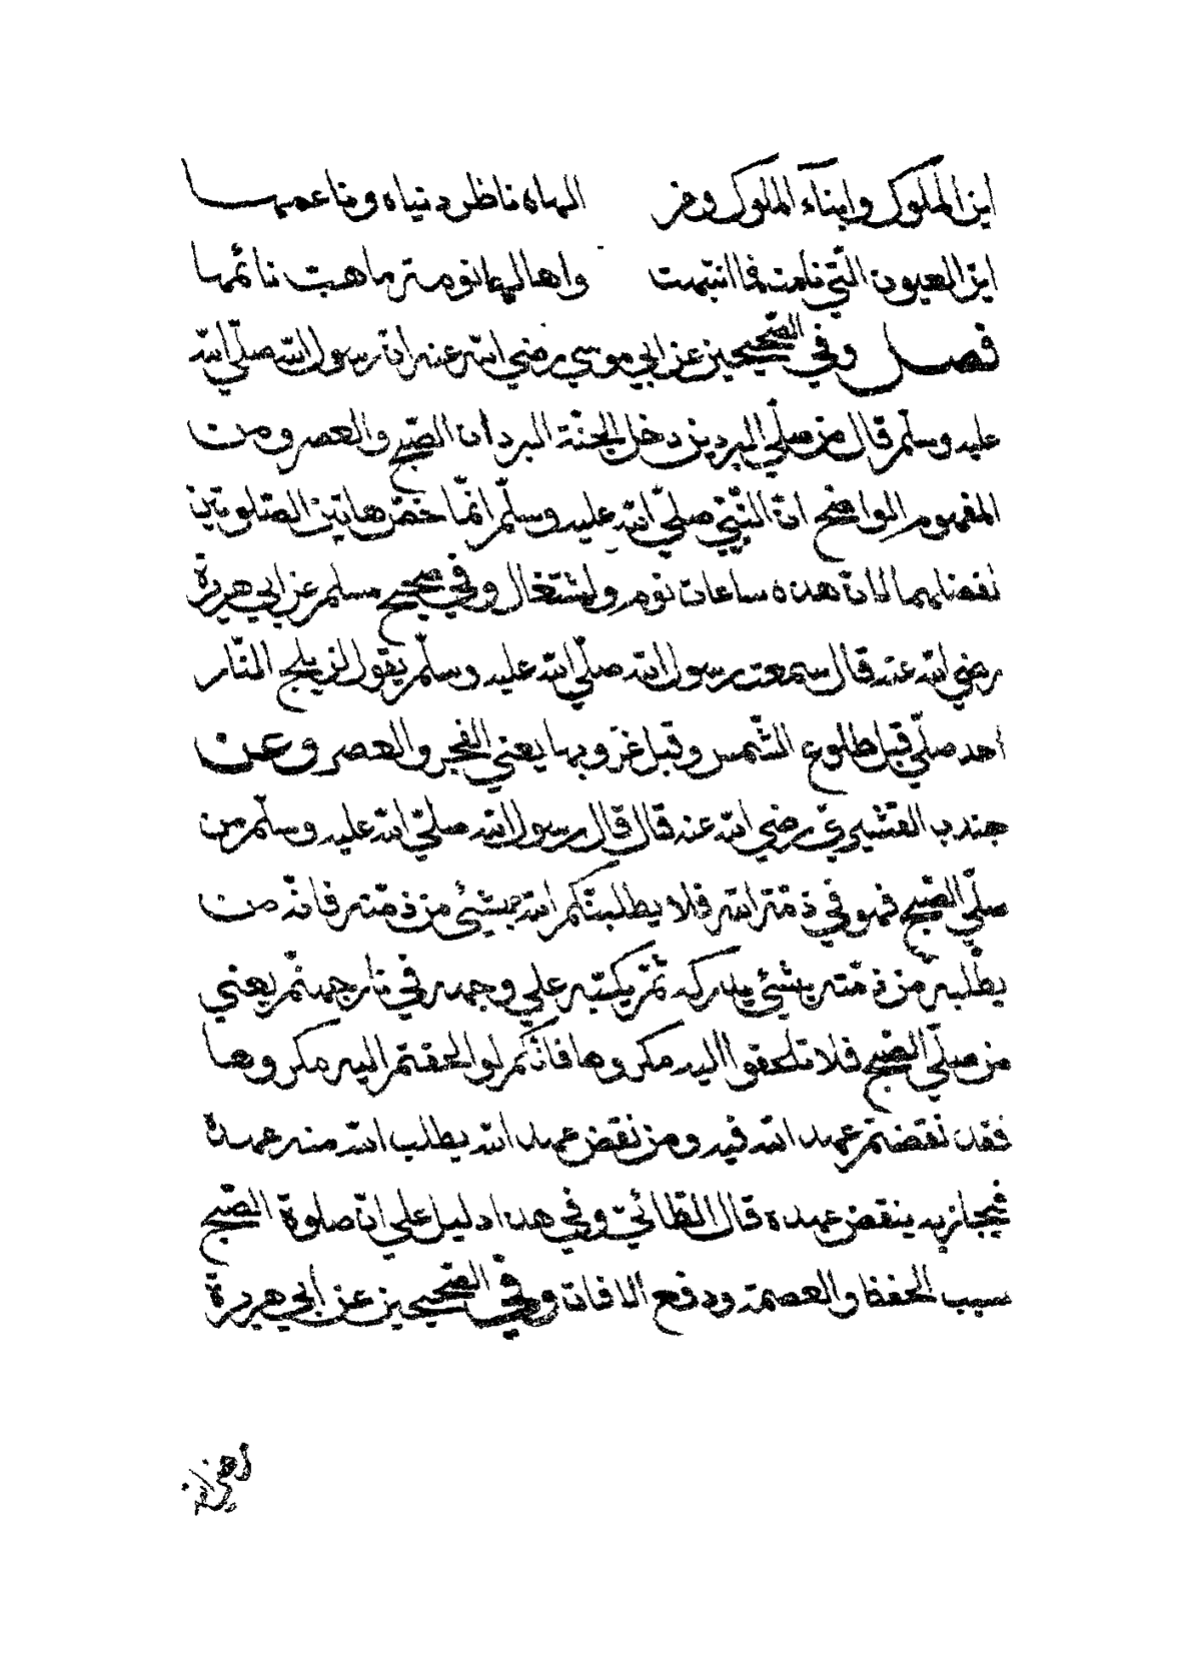 اين الملوك وابناء الملوك ومن الهاه ناظر دنياه وناعمها
اين العيون التي نامت فما انتبهت واها لها نومة ما هبت نائمها
فصل وفي الصحيحين عن ابي موسي رضي الله عنه ان رسول الله صلي الله
عليه وسلم قال من صلي البردين دخل الجنة البردان الصبح والعصر ومن
المفهوم الواضح ان النبي صلي الله عليه وسلم انما خص هاتين الصلوتين
لفضلهما لان هذه ساعات نوم واشتغال وفي صحيح مسلم عن ابي هريرة
رضي الله عنه قال سمعت رسول الله صلي الله عليه وسلم يقول لن يلج النار
احد صلي قبل طلوع الشمس وقبل غروبها يعني الفجر والعصر وعن
جندب القشيري رضي الله عنه قال قال رسول الله صلي الله عليه وسلم من
صلي الصبح فهو في ذمة الله فلا يطلبنكم الله بشئ من ذمته فانه من
يطلبه من ذمته بشئ يدركه ثم يكبه علي وجهه في نار جهنم يعني
من صلي الصبح فلا تلحقوا اليه مكروها فانكم لو الحقتم اليه مكروها
فقد نقضتم عهد الله فيه ومن نقض عهد الله يطلب الله منه عهده
فيجازيه بنقض عهده قال الطائي وفي هذا دليل علي ان صلوة الصبح
سبب الحفظ والعصمة ودفع الافات وفي الصحيحين عن ابي هريرة
رضي الله